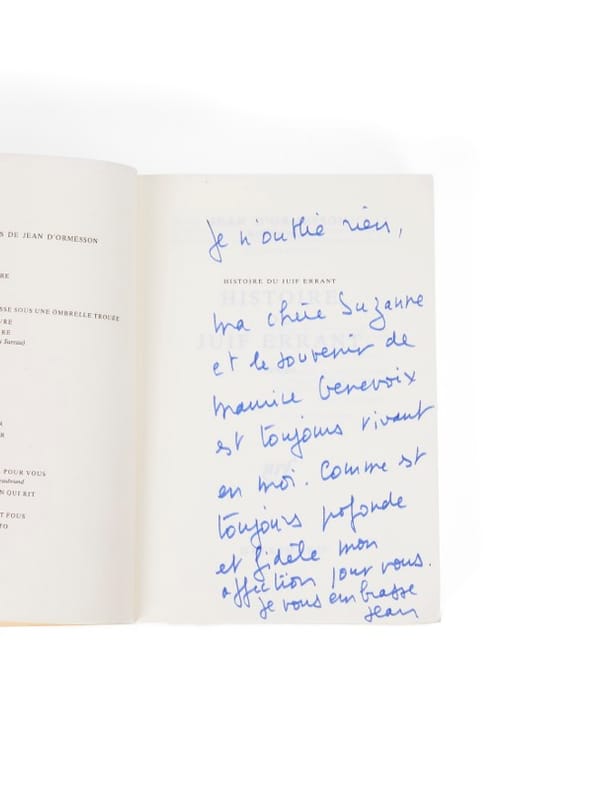 S DE JEAN D'ORMESSON
RE
SSE SOUS UNE OMBRELLE TROUÉE
VRE
RE
s Sureau)
R
R
POUR VOUS
eaubriand
N QUI RIT
T FOUS
TO
Je n'oublie rien,
HISTOIRE DU JUIF ERRANT
HISTOIRE
JUIF ERRANT
ma chère Suzanne
et le souvenir de
Maurice Genevoix
est toujours vivant
en moi. Comme est
toujours profonde
et fidèle mon
affection pour vous.
Je vous embrasse
Jean